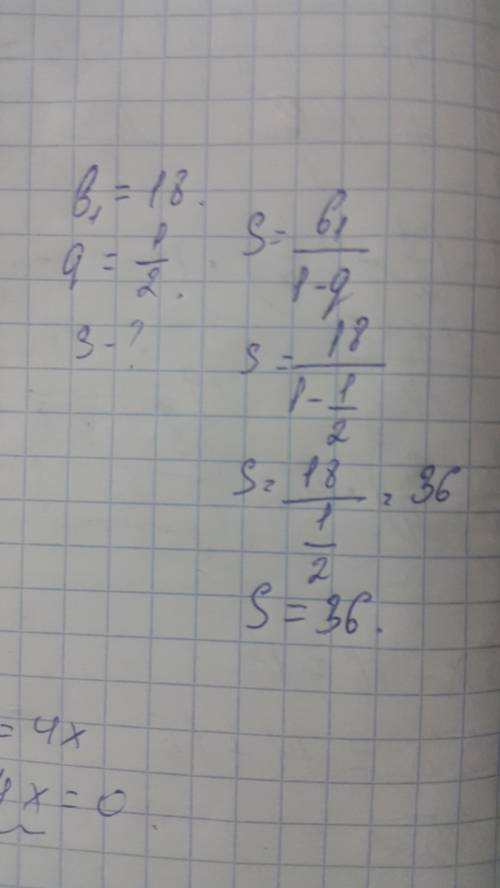 b₁ = 18.
q = 1/2.
S - ?
S = b₁/(1-q)
S = 18/(1 - 1/2)
S = 18/(1/2) = 36
S = 36.
= 4x
x = 0.